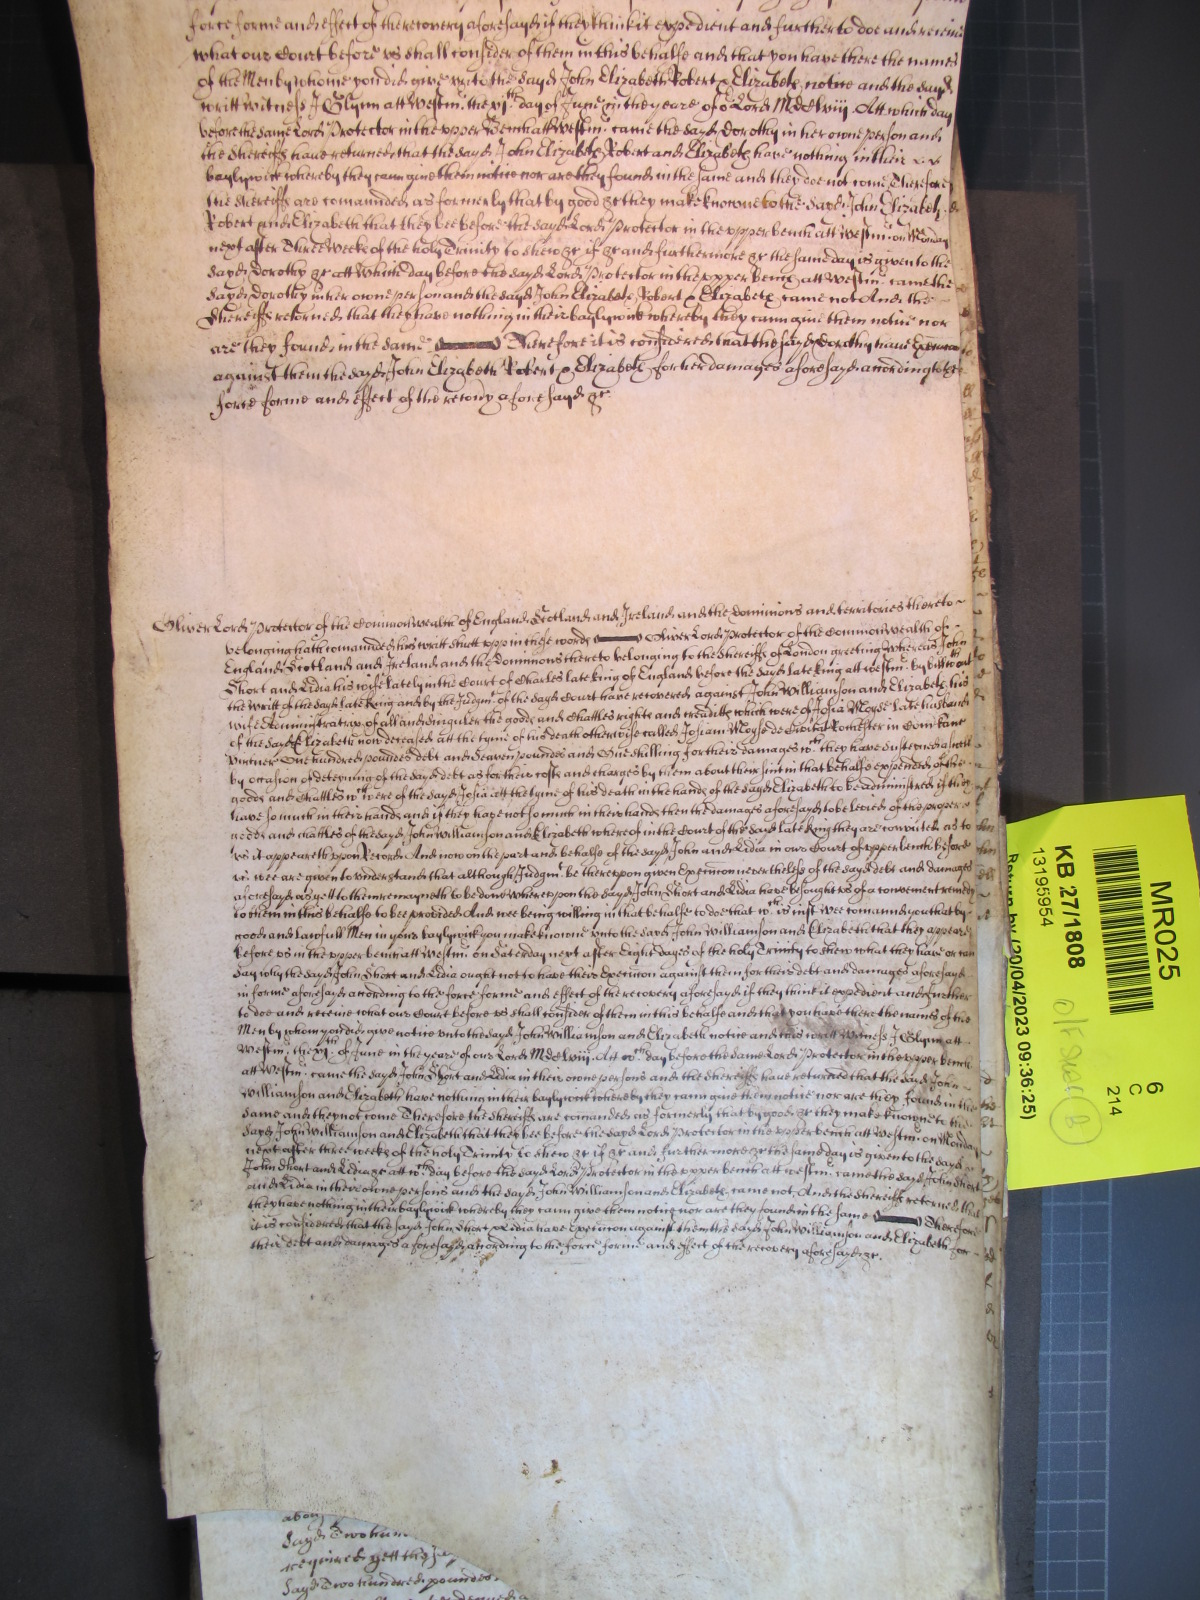 force forme and effect of the recovery aforesayd if they thinke it expedient and further to doe and receive
what our Court before us shall consider of them in this behalfe and that you have there the names
of the Men by whome you did give unto the sayd John Elizabeth Robert & Elizabeth notice and this
writt witnes J Glynn att Westmr. the xjth day of June in the yeare of or Lord MDCLviij. Att which day
before the same Lord Protector in the upper Bench att Westmr. came the sayd Dorothy in her owne person and
the Sheriffs have returned that the sayd John Elizabeth Robert and Elizabeth have nothing in their
baylywick whereby they cann give them notice nor are they found in the same and they doe not come Therefore
the sheriffs are comannded as formerly that by good &c they make knowne to the sayd John Elizabeth
Robert and Elizabeth that they bee before the sayd Lord Protector in the upper bench att Westmr. on Monday
next after Three Weeks of the holy Trinity to shew &c if &c and furthermore &c the same day is given to the
sayd Dorothy &c att which day before the sayd Lord Protector in the upper bench att Westmr. came the
sayd Dorothy in her owne person and the sayd John Elizabeth Robert & Elizabeth came not And the
Sheriffs returned that they have nothing in their baylywick whereby they cann give them notice nor
are they found in the same Therefore it is considered that the sayd Dorothy have Execucon
against them the sayd John Elizabeth Robert & Elizabeth for her damages aforesayd according to the
force forme and effect of the recovery aforesayd &c
Oliver Lord Protector of the Common Wealth of England Scotland and Ireland and the dominions and territories thereto
belonging hath comannded his writt shutt upp in these words Oliver Lord Protector of the Common Wealth of
England Scotland and Ireland and the dominions thereto belonging to the sheriffs of London greeting Whereas John
Short and Lidia his wife lately in the Court of Charles late king of England before the sayd late king att westmr. by bill without
the writt of the sayd late king and by the Judgmt. of the sayd Court have recovered against John Williamson and Elizabeth his
wife Administratrix of all and singuler the goods and Chattles rights and creditts which were of Josia Moyse late husband
of the sayd Elizabeth now deceased att the tyme of his death otherwise called Josiam Moysse de Civitat Rochester in Com Kanc
One hundred pounds debt and seaven pounds and One shilling for their damages wch. they have susteyned aswell
by occasion of deteyning of the sayd debt as for their costs and charges by them about their suit in that behalfe expended of the
goods and Chattles wch were of the sayd Josia att the tyme of his death in the hands of the sayd Elizabeth to be administred if they
have so much in their hands and if they have not so much in their hands then the damages aforesayd to be levied of the proper
goods and chattles of the sayd John Williamson and Elizabeth whereof in the Court of the sayd late king they are convicted as to
us it appeareth upon Record And now on the part and behalfe of the sayd John and Lidia in our Court of upper bench before
us wee are given to understand that although Judgmt. be thereupon given Execucon neverthelesse of the sayd debt and damages
aforesayd as yett to them remayneth to be done Whereupon the sayd John Short and Lidia have besought us of a convenient remedy
to them in this behalfe to bee provided And wee being willing in that behalfe to doe that wch. is just wee comannd you that by
good and lawfull Men in your baylywick you make knowne unto the sayd John Williamson and Elizabeth that they appeare
before us in the upper bench att Westmr. on Saturday next after Eight dayes of the holy Trinity to shew what they have or can
say why the sayd John Short and Lidia ought not to have their Execucon against them for their debt and damages aforesayd
in forme aforesayd according to the force forme and effect of the recovery aforesayd if they think it expedient and further
to doe and receive what our Court before us shall consider of them in this behalfe and that you have there the names of the
Men by whom you did give notice unto the sayd John Williamson and Elizabeth notice and this writt Witnes J Glynn att
Westmr. the xjth. of June in the yeare of our Lord MDCLviij. Att wch day before the same Lord Protector in the upper bench
att Westmr. came the sayd John Short and Lidia in their owne persons and the sheriffs have returned that the sayd John
Williamson and Elizabeth have nothing in their baylywick whereby they cann give them notice nor are they found in the
same and they not come Therefore the sheriffs are comanded as formerly that by good &c they make knowne to the
sayd John Williamson and Elizabeth that they bee before the sayd Lord Protector in the upper bench att Westmr. on Monday
next after three weeks of the holy Trinity to shew &c if &c and further more &c the same day is given to the sayd
John Short and Lidia &c att wch day before the sayd Lord Protector in the upper bench att westmr. came the sayd John Short
and Lidia in their owne persons and the sayd John Williamson and Elizabeth came not And the sheriffs returned that
they have nothing in their baylywick whereby they cann give them notice nor are they found in the same Therefore
it is considered that the sayd John Short & Lidia have Execucon against them the sayd John Williamson and Elizabeth for
their debt and damages aforesayd according to the force forme and effect of the recovery aforesayd &c.
sayd Two hun
required yett they
sayd Two hundred pounds
MR025
KB 27/1808
13195954
6
C
214
(20/04/2023 09:36:25)